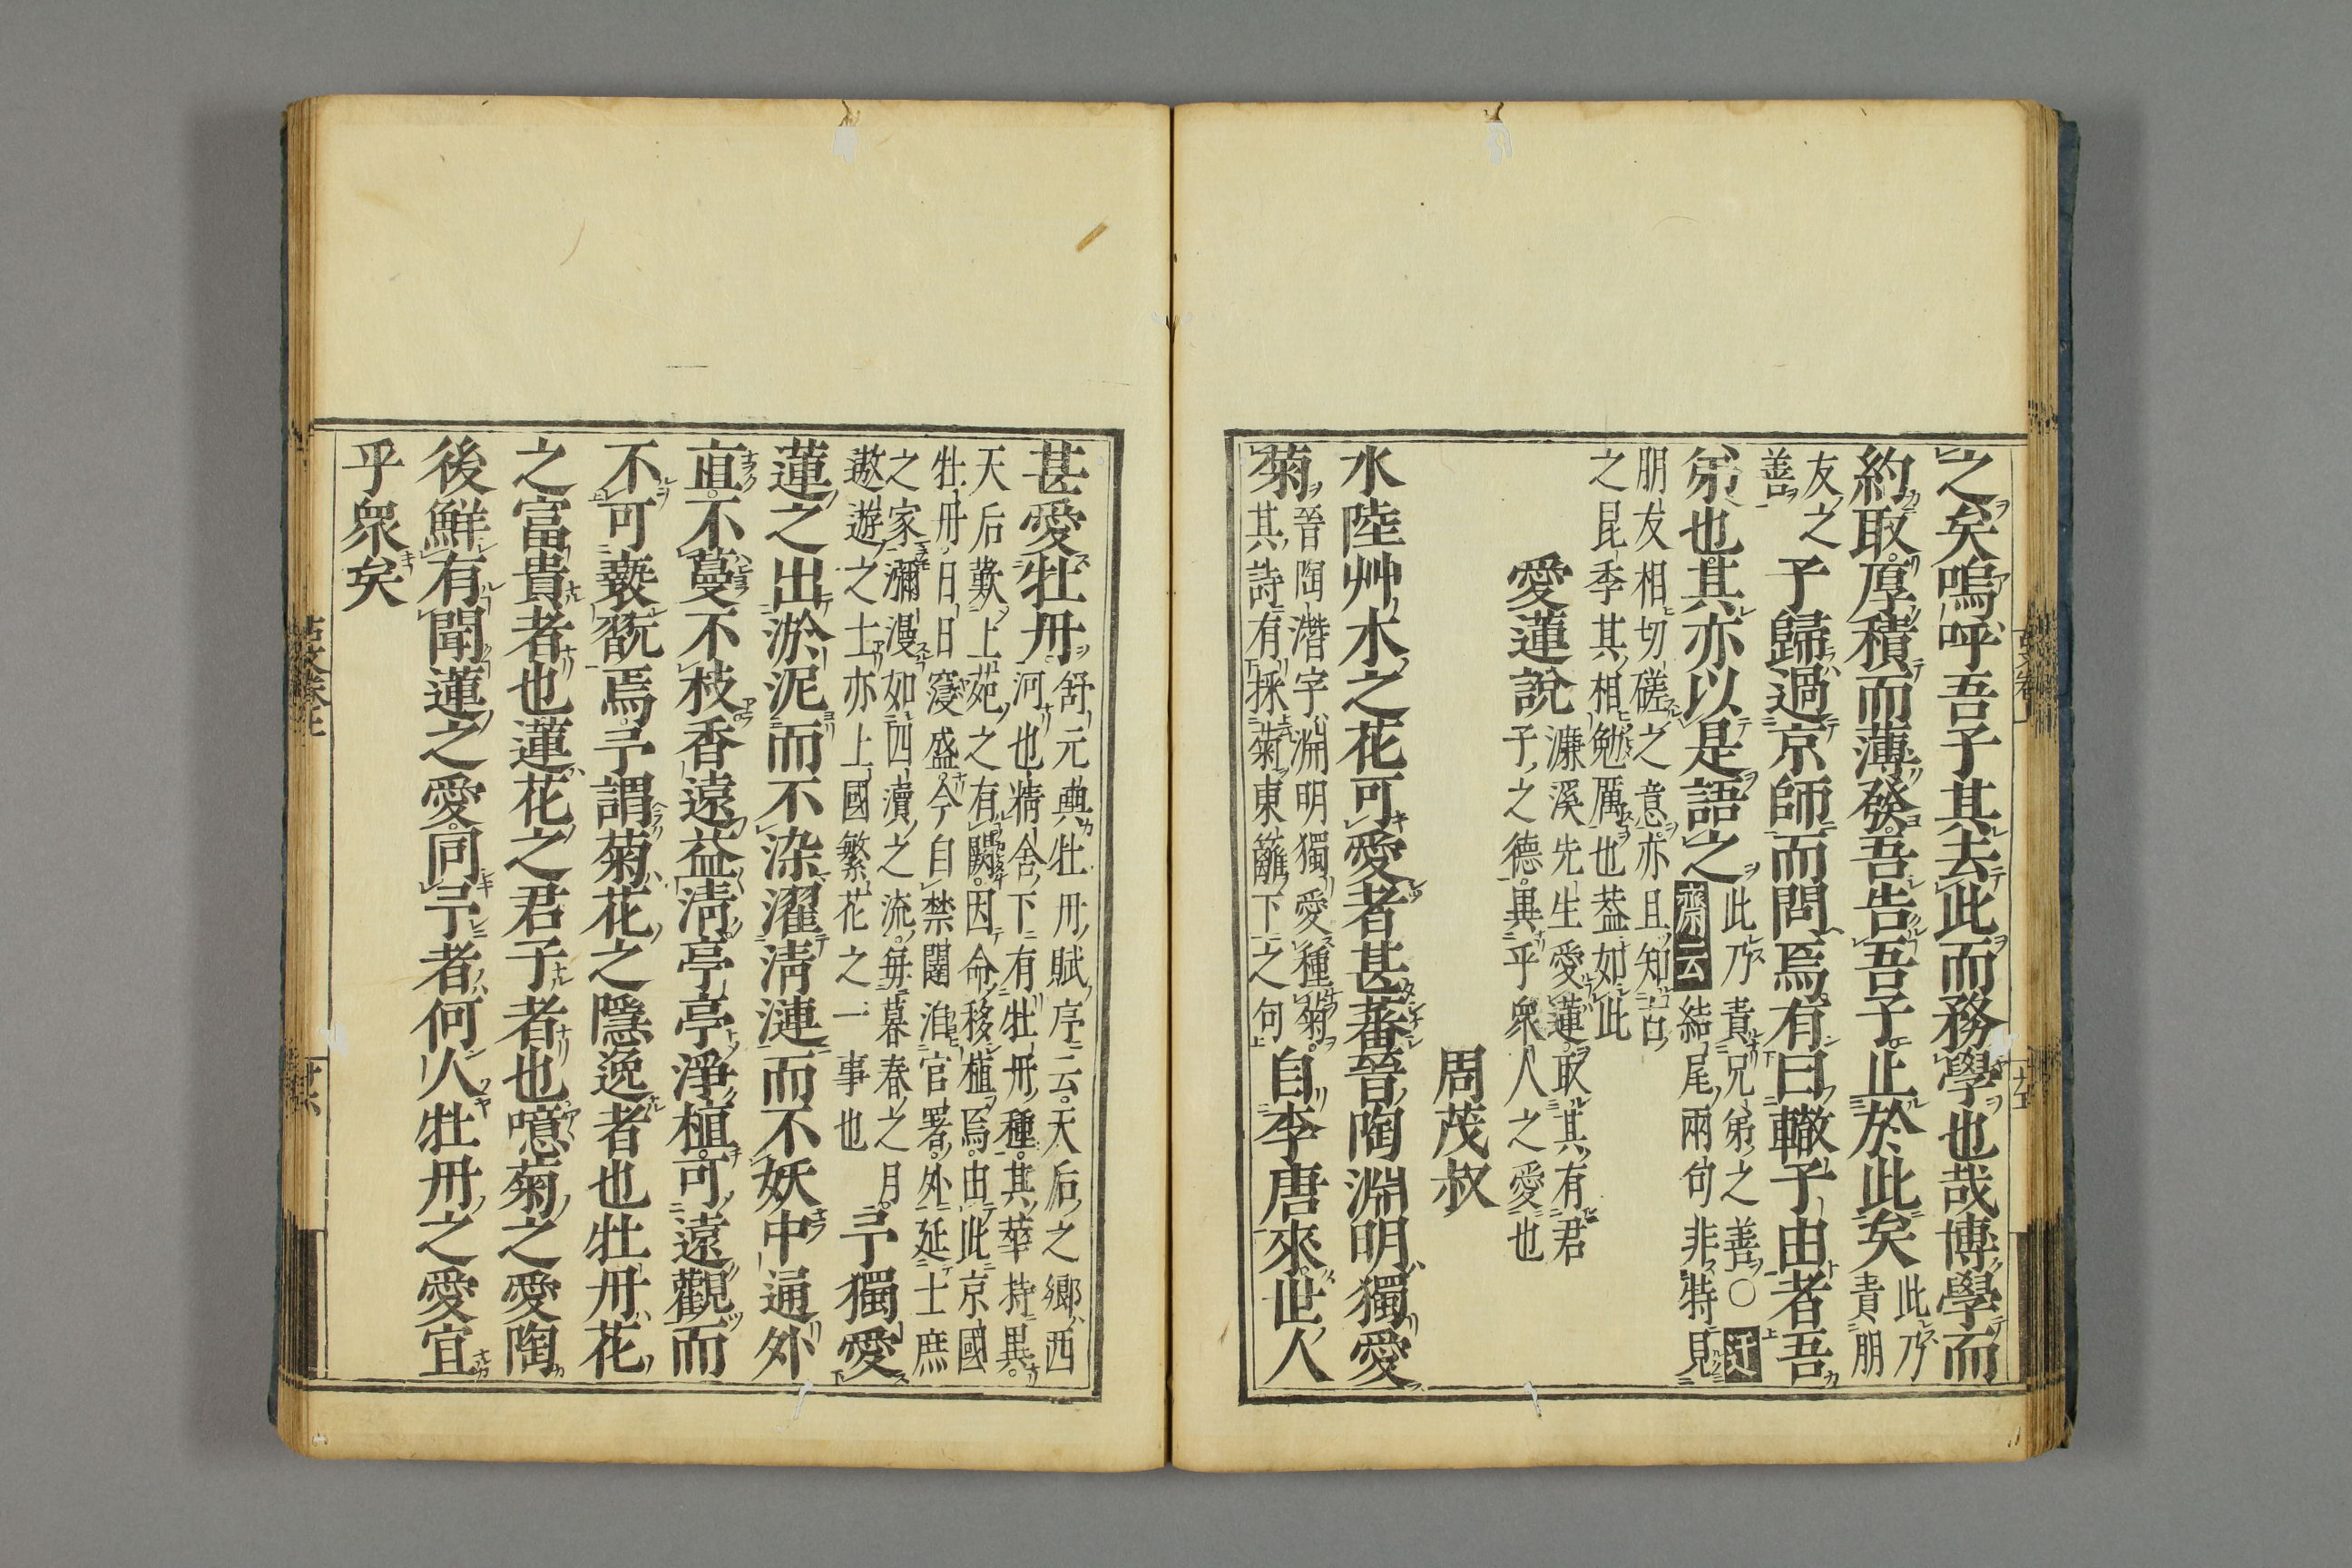 之矣嗚呼吾子其去此而務學也哉博學而
約取厚積而薄發吾告吾子止於此矣此乃責朋
友之善予歸過京師而問焉有曰轍子由者吾
弟也其亦以是語之此乃責兄弟之善〇迂齋云結尾兩句非特見
朋友相切磋之意亦且知古
之昆季其相勉厲也葢如此
愛蓮說濂溪先生愛蓮取其有君子之德異乎衆人之愛也
周茂叔
水陸艸木之花可愛者甚蕃晉陶淵明獨愛
菊晉陶潛字淵明獨愛種菊其詩有採菊東籬下之句自李唐來世人
甚愛牡丹舒元輿牡丹賦序云天后之鄉西河也精舍下有牡丹種其華特異
天后歎上苑之有闕因命移植焉由此京國
牡丹日日寖盛今自禁闥洎官署外延士庶
之家瀰漫如四瀆之流每暮春之月
遨遊之士亦上國繁花之一事也予獨愛
蓮之出淤泥而不染濯清漣而不妖中通外
直不蔓不枝香遠益清亭亭淨植可遠觀而
不可褻翫焉予謂菊花之隱逸者也牡丹花
之富貴者也蓮花之君子者也噫菊之愛陶
後鮮有聞蓮之愛同予者何人牡丹之愛宜
乎衆矣